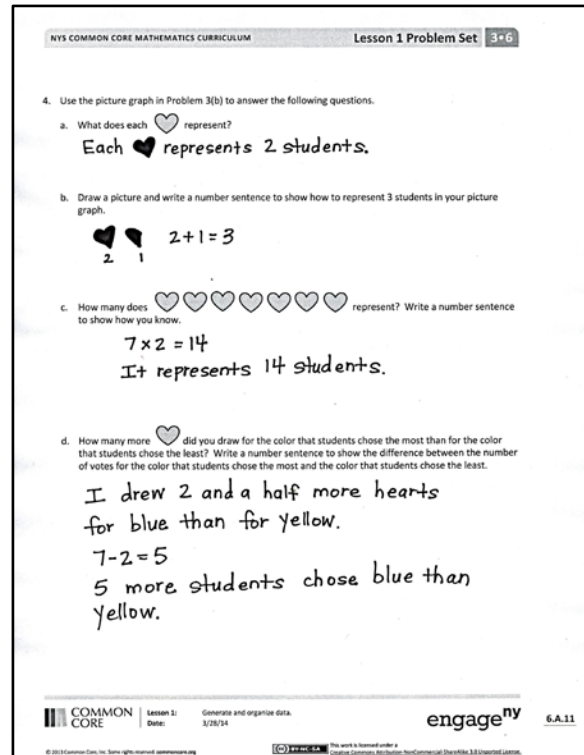 NYS COMMON CORE MATHEMATICS CURRICULUM Lesson 1 Problem Set 3•6
4. Use the picture graph in Problem 3(b) to answer the following questions.
a. What does each represent?
Each represents 2 students.
b. Draw a picture and write a number sentence to show how to represent 3 students in your picture
graph.
2+1=3
2 1
c. How many does represent? Write a number sentence
to show how you know.
7 × 2 = 14
It represents 14 students.
d. How many more did you draw for the color that students chose the most than for the color
that students chose the least? Write a number sentence to show the difference between the number
of votes for the color that students chose the most and the color that students chose the least.
I drew 2 and a half more hearts
for blue than for yellow.
7-2=5
5 more students chose blue than
yellow.
COMMON CORE
Lesson 1: Generate and organize data.
Date: 3/28/14
engageny
6.A.11
© 2013 Common Core, Inc. Some rights reserved. commoncore.org
(cc) BY-NC-SA This work is licensed under a
Creative Commons Attribution-NonCommercial-ShareAlike 3.0 Unported License.